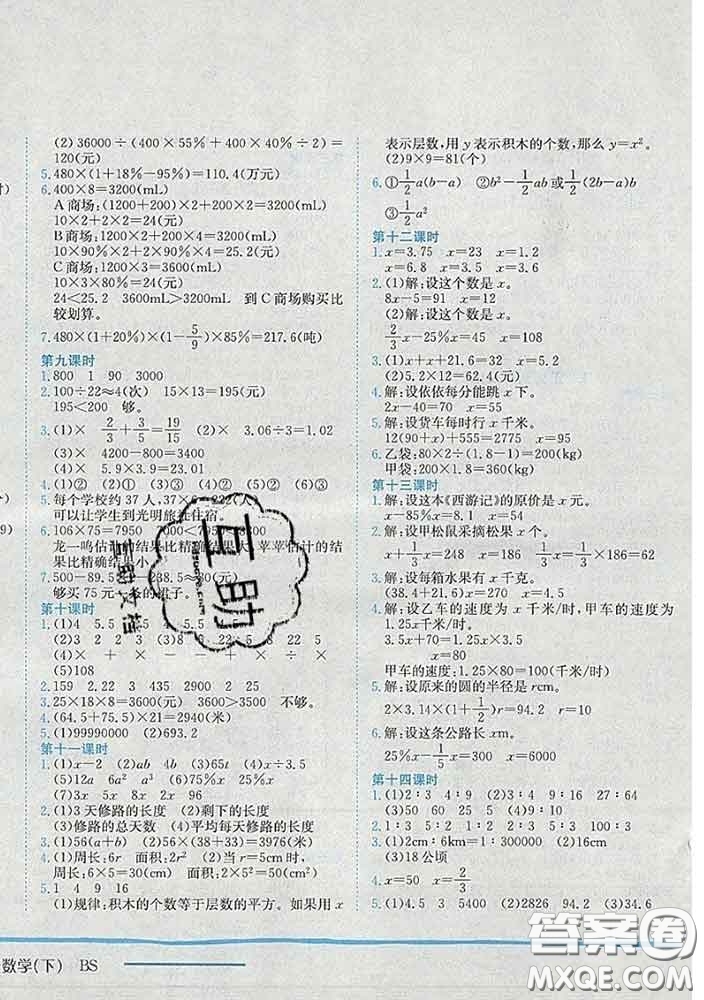 (2)36000÷(400×55%+400×40%÷2)=
120(元)
5.480×(1+18%-95%)=110.4(万元)
6.400×8=3200(mL)
A商场:(1200+200)×2+200×2=3200(mL)
10×2+2×2=24(元)
B商场:1200×2+200×2×2=3200(mL)
10×90%×2+2×90%×2×2=25.2(元)
C商场:1200×3=3600(mL)
10×3×80%=24(元)
24<25.2 3600mL>3200mL 到C商场购买比
较划算。
7.480×(1+20%)×(1-5/9)×85%=217.6(吨)
第九课时
1.800 1 90 3000
2.100÷22≈4(次) 15×13=195(元)
195<200 够。
3.(1)× 2/3+3/5=19/15 (2)× 3.06÷3=1.02
(3)× 4200-800=3400
(4)× 5.9×3.9=23.01
4.(1)② (2)① (3)② (4)① (5)②
5.每个学校约37人,37×6=222(人)
可以让学生到光明旅社住宿。
6.106×75=7950
龙一鸣估计的结果比精确结果大,苹苹估计的结
果比精确结果小。
7.500-89.5
够买75元一条的裙子。
第十课时
(2)3 2 2 3 (3)8 5 8 8 22 5
(5)108
2.159 22 22 4 4 2900 2900
3.25×18×8=3600(元) 3600>3500 不够。
4.(64.5+75.5)×21=2940(米)
5.(1)99990000 (2)693.2
第十一课时
1.(1)x-2 (2)4b (3)65t (4)a+b
(5)12a 6a² a³ (6)5b
(7)3x 5x 8x 2x 96
2.(1)3天修路的长度 (2)剩下的长度
(3)修路的总天数 (4)平均每天修路的长度
3.(1)56(a+b) (2)56×(38+33)=3976(米)
4.(1)周长:6r 面积:2r² (2)当r=5cm时,
周长:6×5=30(cm) 面积:2×5²=50(cm²)
5.1 4 9 16
(1)规律:积木的个数等于层数的平方。如果用x
表示层数,用y表示积木的个数,那么y=x²。
(2)9×9=81(个)
6.①1/2a(b-a) ②b²-1/2ab或1/2(2b-a)b
③1/2a²
第十二课时
1.x=3.75 x=23 x=1.2
x=6.8 x=3.2 x=3.8
2.(1)解:设这个数是x。
8x-5=91 x=12
(2)解:设这个数是x。
2/3x-25%x=45 x=108
3.(1)x+x+21.6=32 x=5.2
(2)5.2×12=62.4
4.解:设依依每分能跳x下。
2x-40=70 x=55
5.解:设货车每时行x千米。
12(90+x)+555=2775 x=95
6.乙袋:80×2÷(1.8-1)=200(kg)
甲袋:200×1.8=360(kg)
第十三课时
1.解:设这本《西游记》的原价是x元。
x-85%x=9 x=60
2.解:设甲松鼠采摘松果x个。
x+1/3x=248 x=186 1/3x=1/3×186=62
3.解:设每箱水果有x千克。
(38.4+21.6)x=510 x=8.5
4.解:设乙车的速度为x千米/时,甲车的速度为
1.25x千米/时。
3.5x+70=1.25x×3.5
x=80
甲车的速度:1.25×80=100(千米/时)
5.解:设原来的圆的半径是rcm。
2×3.14×(1+1/2)r=94.2 r=10
6.解:设这条公路长xm。
25%x-1/20x=300 x=6000
第十四课时
1.(1)2∶3 4∶9 (2)4∶9 16∶27 64
(3)50 60 25 5 (4)9∶10 9∶100
2.1∶3 5∶2 5∶12 1∶5
3.(1)2cm∶6km=1∶300000 (2)16cm
(3)18公顷
4.x=50 x=2/3
5.(1)4.5 3 5400 (2)2826 94.2 (3)34.6
数学(下) BS
互助
互助文档
答案圈
MXQE.COM